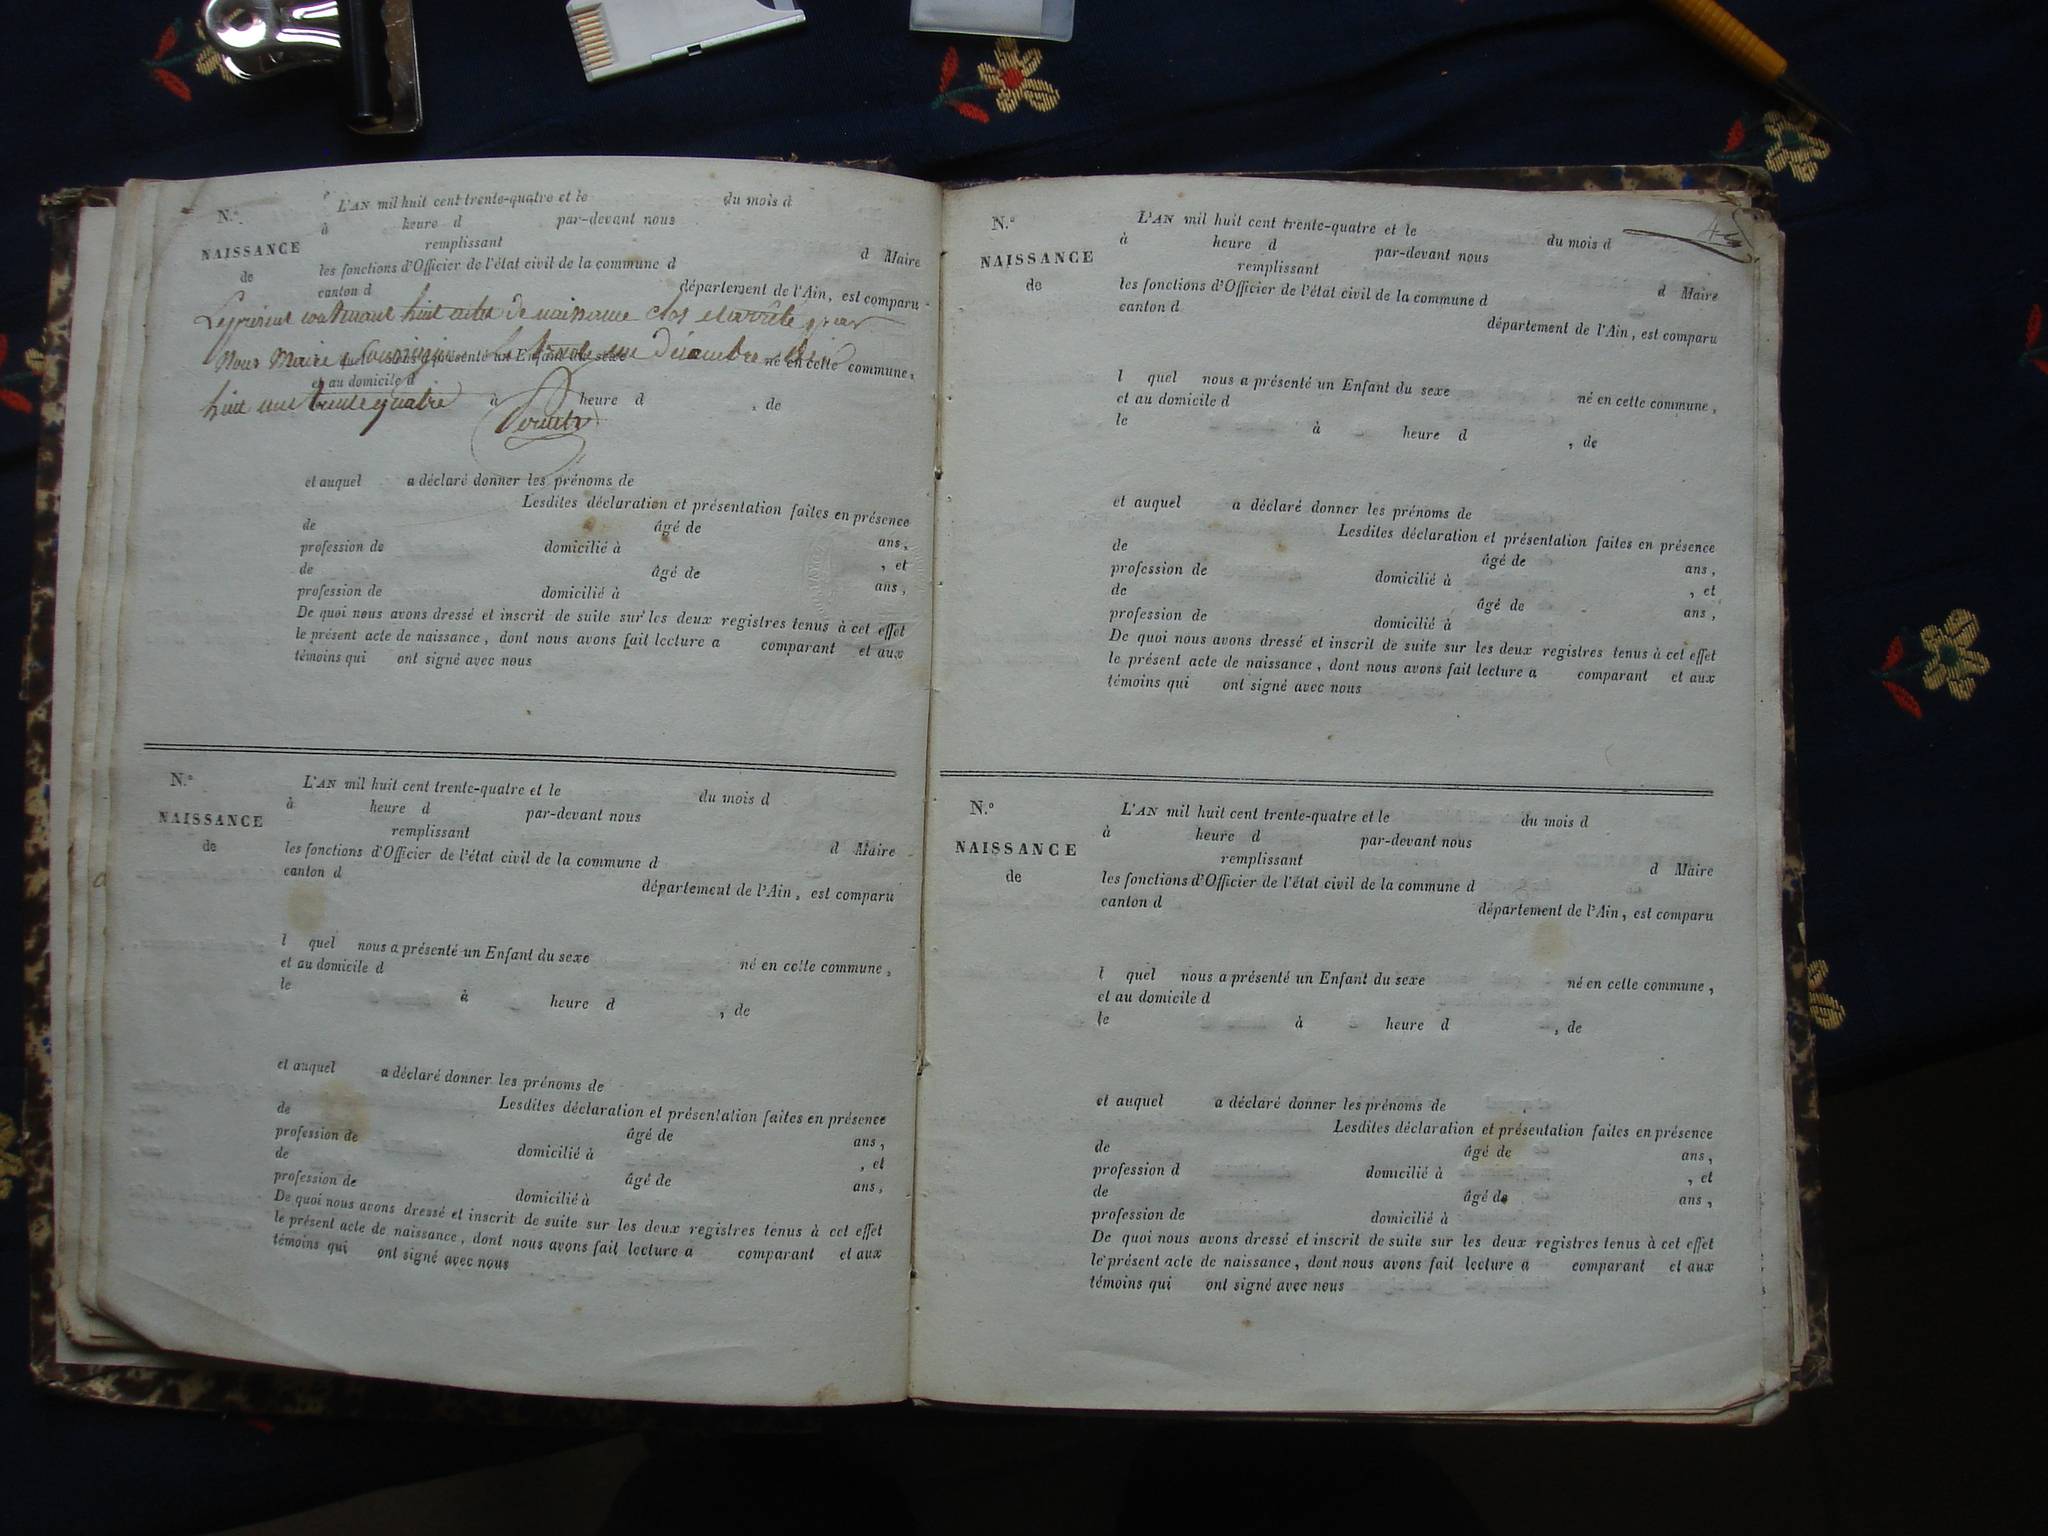 N.°
NAISSANCE
de
L'AN mil huit cent trente-quatre et le du mois d
à heure d par-devant nous
remplissant d Maire
les fonctions d'Officier de l'état civil de la commune d
canton d département de l'Ain, est comparu
Le présent contenant huit actes de naissance clos et arrêté par
Nous Maire décembre mil
quel nous a présenté un Enfant du sexe né en cette commune,
et au domicile d
huit cent trente quatre
à heure d , de
et auquel a déclaré donner les prénoms de
Lesdites déclaration et présentation faites en présence
de âgé de ans,
profession de domicilié à , et
de âgé de ans,
profession de domicilié à
De quoi nous avons dressé et inscrit de suite sur les deux registres tenus à cet effet
le présent acte de naissance, dont nous avons fait lecture a comparant et aux
témoins qui ont signé avec nous
N.°
NAISSANCE
de
L'AN mil huit cent trente-quatre et le du mois d
à heure d par-devant nous
remplissant d Maire
les fonctions d'Officier de l'état civil de la commune d
canton d département de l'Ain, est comparu
l quel nous a présenté un Enfant du sexe né en cette commune,
et au domicile d
le à heure d , de
et auquel a déclaré donner les prénoms de
Lesdites déclaration et présentation faites en présence
de âgé de ans,
profession de domicilié à , et
de âgé de ans,
profession de domicilié à
De quoi nous avons dressé et inscrit de suite sur les deux registres tenus à cet effet
le présent acte de naissance, dont nous avons fait lecture a comparant et aux
témoins qui ont signé avec nous
N.°
NAISSANCE
de
L'AN mil huit cent trente-quatre et le du mois d
à heure d par-devant nous
remplissant d Maire
les fonctions d'Officier de l'état civil de la commune d
canton d département de l'Ain, est comparu
l quel nous a présenté un Enfant du sexe né en cette commune,
et au domicile d
le à heure d , de
et auquel a déclaré donner les prénoms de
Lesdites déclaration et présentation faites en présence
de âgé de ans,
profession de domicilié à , et
de âgé de ans,
profession de domicilié à
De quoi nous avons dressé et inscrit de suite sur les deux registres tenus à cet effet
le présent acte de naissance, dont nous avons fait lecture a comparant et aux
témoins qui ont signé avec nous
N.°
NAISSANCE
de
L'AN mil huit cent trente-quatre et le du mois d
à heure d par-devant nous
remplissant d Maire
les fonctions d'Officier de l'état civil de la commune d
canton d département de l'Ain, est comparu
l quel nous a présenté un Enfant du sexe né en cette commune,
et au domicile d
le à heure d , de
et auquel a déclaré donner les prénoms de
Lesdites déclaration et présentation faites en présence
de âgé de ans,
profession d domicilié à , et
de âgé de ans,
profession de domicilié à
De quoi nous avons dressé et inscrit de suite sur les deux registres tenus à cet effet
le présent acte de naissance, dont nous avons fait lecture a comparant et aux
témoins qui ont signé avec nous